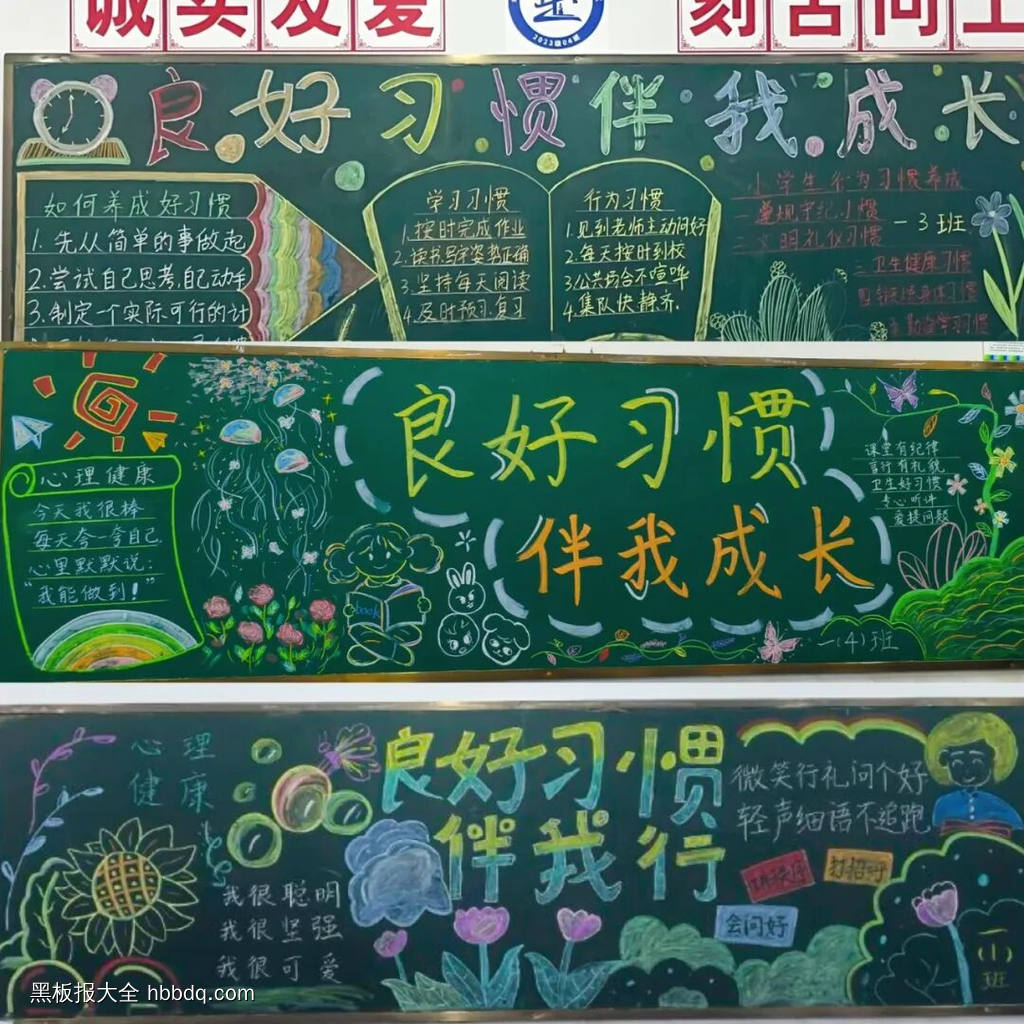 诚实友爱
刻苦向上
2023级04班
良好习惯伴我成长
如何养成好习惯
1.先从简单的事做起
2.尝试自己思考,自己动手
3.制定一个实际可行的计
学习习惯
1.按时完成作业
2.读书写字姿势正确
3.坚持每天阅读
4.及时预习.复习
行为习惯
1.见到老师主动问好
2.每天按时到校
3.公共场合不喧哗
4.集队快静齐.
小学生行为习惯养成
一遵规守纪习惯
一3班
二文明礼仪习惯
三卫生健康习惯
五勤奋学习习惯
良好习惯
伴我成长
心理健康
今天我很棒
每天夸一夸自己
心里默默说:
"我能做到!"
book
课堂有纪律
言行有礼貌
卫生好习惯
专心听讲
爱提问题
一(4)班
心理
健康
良好习惯
伴我行
微笑行礼问个好
轻声细语不追跑
讲秩序
打招呼
会问好
我很聪明
我很坚强
我很可爱
一(1)班
黑板报大全 hbbdq.com